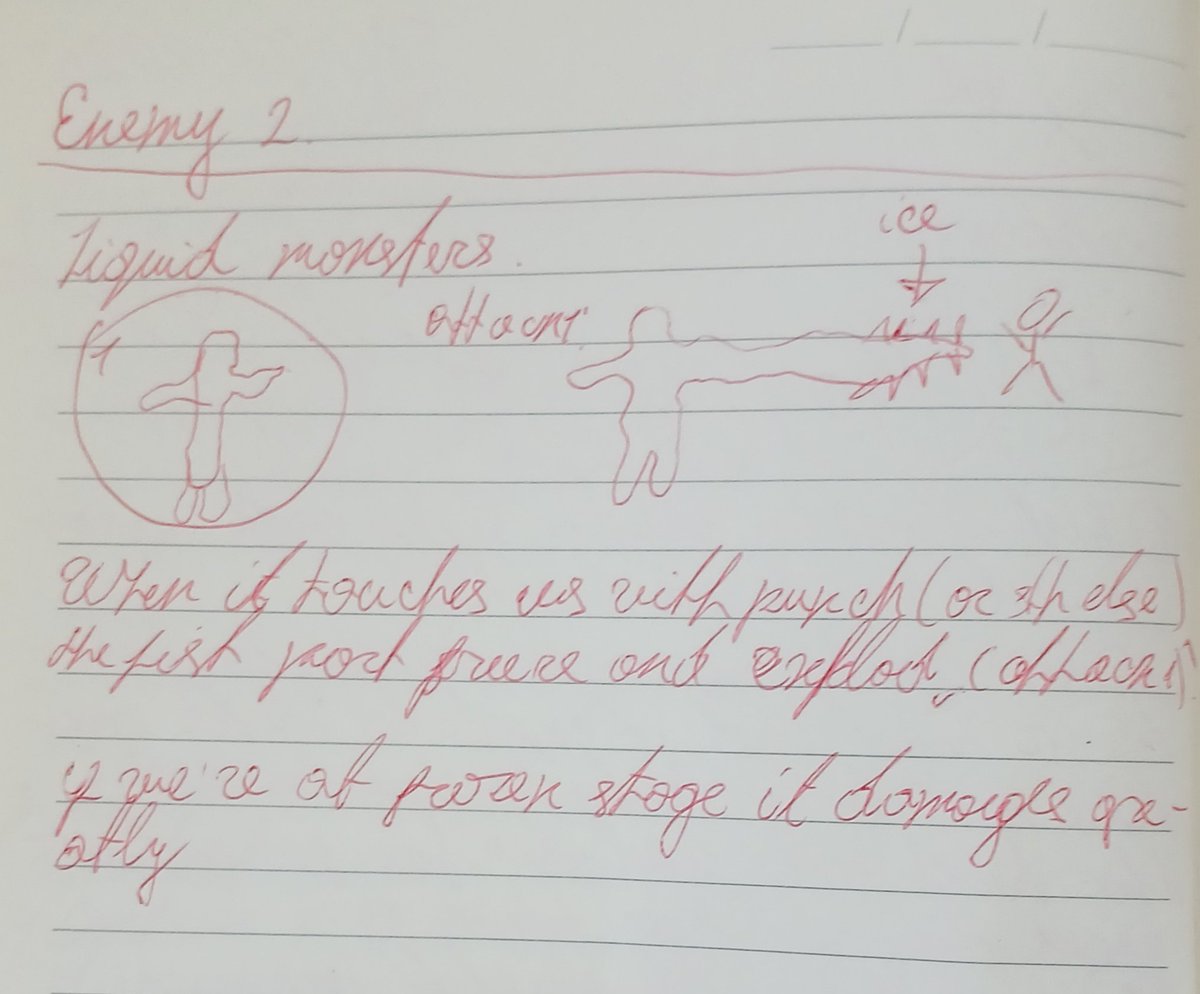 Enemy 2.
Liquid monsters.
ice
1
attack1
When it touches us with punch (or sth else)
the fist part freeze and explod, (attack 1)
if we're at frozen stage it damages gre-
atly